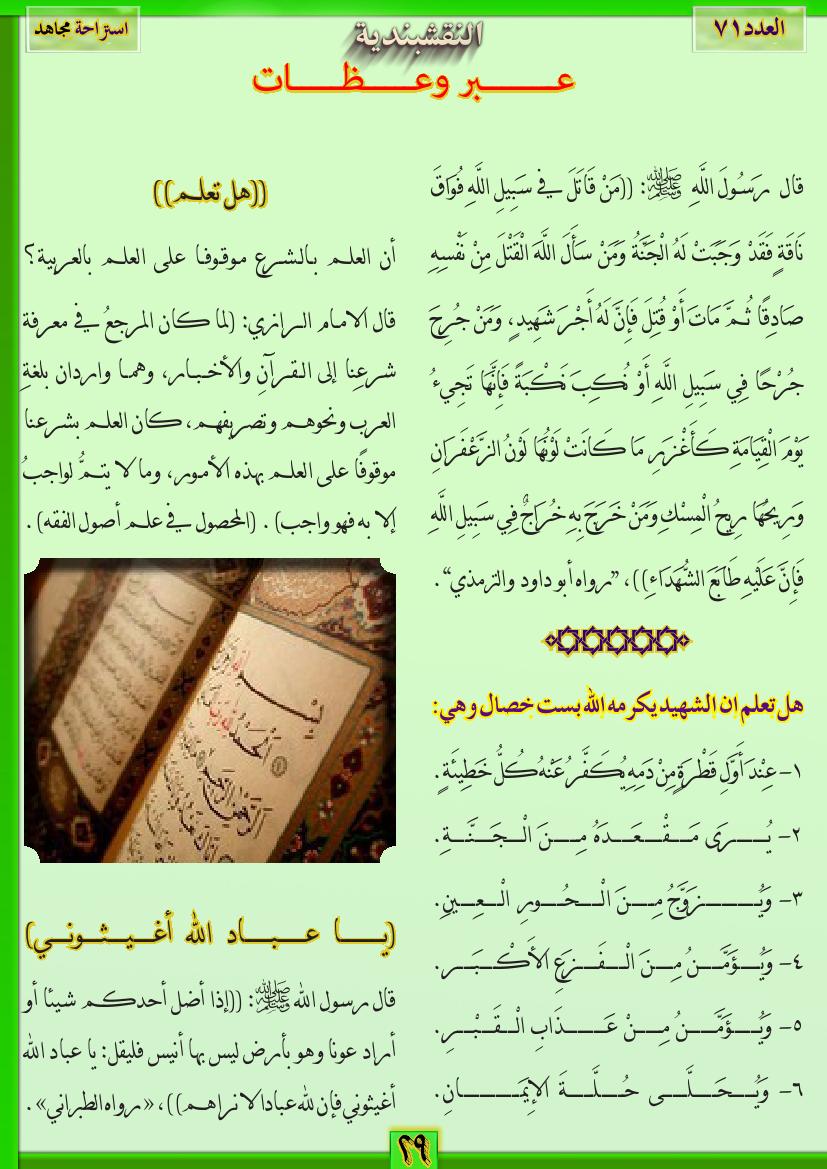 العدد ٧١
النقشبندية
استراحة مجاهد
عبر وعظات
قال رَسُولَ اللَّهِ ﷺ: ((مَنْ قَاتَلَ في سَبِيلِ اللَّهِ فُوَاقَ
نَاقَةٍ فَقَدْ وَجَبَتْ لَهُ الْجَنَّةُ وَمَنْ سَأَلَ اللَّهَ الْقَتْلَ مِنْ نَفْسِهِ
صَادِقًا ثُمَّ مَاتَ أَوْ قُتِلَ فَإِنَّ لَهُ أَجْرَ شَهِيدٍ، وَمَنْ جُرِحَ
جُرْحًا فِي سَبِيلِ اللَّهِ أَوْ نُكِبَ نَكْبَةً فَإِنَّهَا تَجِيءُ
يَوْمَ الْقِيَامَةِ كَأَغْزَرِ مَا كَانَتْ لَوْنُهَا لَوْنُ الزَّعْفَرَانِ
وَرِيحُهَا رِيحُ الْمِسْكِ وَمَنْ خَرَجَ بِهِ خُرَاجٌ فِي سَبِيلِ اللَّهِ
فَإِنَّ عَلَيْهِ طَابَعَ الشُّهَدَاءِ))، "رواه أبو داود والترمذي".
هل تعلم ان الشهيد يكرمه الله بست خصال وهي:
١- عِنْدَ أَوَّلِ قَطْرَةٍ مِنْ دَمِهِ يُكَفَّرُ عَنْهُ كُلُّ خَطِيئَةٍ.
٢- يُرَى مَقْعَدَهُ مِنَ الْجَنَّةِ.
٣- وَيُزَوَّجُ مِنَ الْحُورِ الْعِينِ.
٤- وَيُؤَمَّنُ مِنَ الْفَزَعِ الأَكْبَرِ.
٥- وَيُؤَمَّنُ مِنْ عَذَابِ الْقَبْرِ.
٦- وَيُحَلَّى حُلَّةَ الإِيمَانِ.
((هل تعلم))
أن العلم بالشرع موقوفا على العلم بالعربية؟
قال الامام الرازي: (لما كان المرجعُ في معرفة
شرعِنا إلى القرآنِ والأخبار، وهما واردان بلغةِ
العرب ونحوهم وتصريفهم، كان العلم بشرعنا
موقوفًا على العلم بهذه الأمور، وما لا يتمُّ لواجبُ
إلا به فهو واجب) . (المحصول في علم أصول الفقه) .
(يا عباد الله أغيثوني)
قال رسول الله ﷺ: ((إذا أضل أحدكم شيئا أو
أراد عونا وهو بأرض ليس بها أنيس فليقل: يا عباد الله
أغيثوني فإن لله عبادا لا نراهم))، «رواه الطبراني».
٢٩